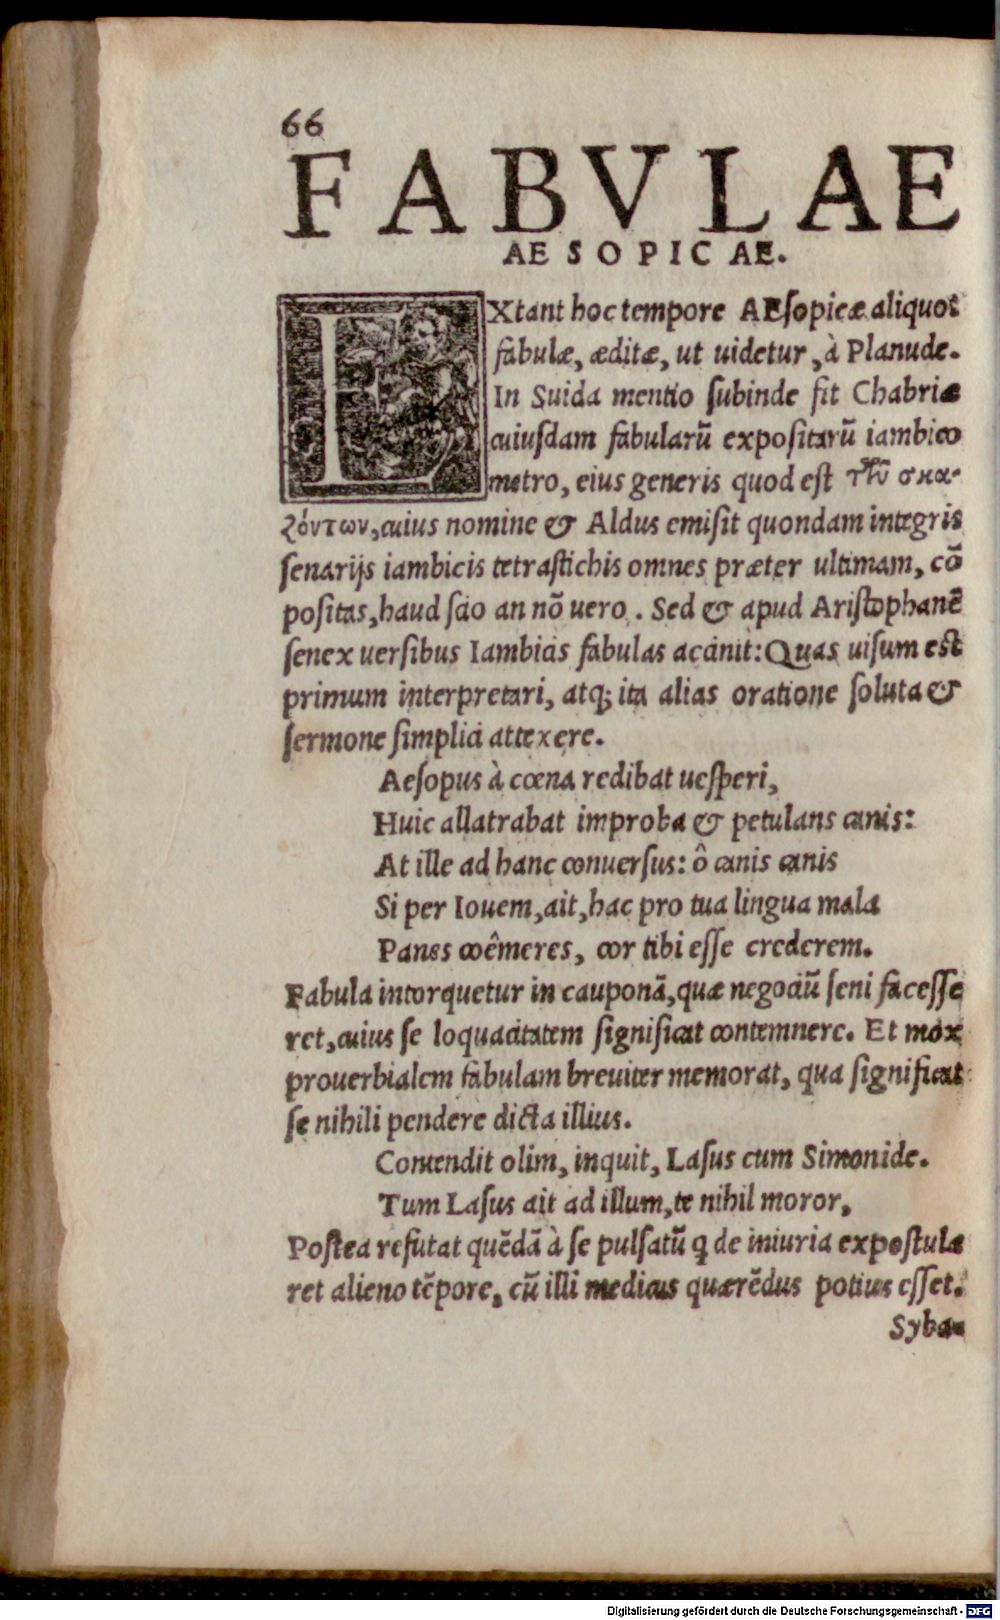 66
FABVLAE
AESOPICAE.
EXtant hoc tempore AEſopicæ aliquot
fabulæ, æditæ, ut uidetur, à Planude.
In Suida mentio ſubinde fit Chabriæ
cuiuſdam fabularũ expoſitarũ iambico
metro, eius generis quod eſt τῶν σκα-
ζόντων, cuius nomine & Aldus emiſit quondam integris
ſenarijs iambicis tetraſtichis omnes præter ultimam, cõ
poſitas, haud ſcio an nõ uero. Sed & apud Ariſtophanẽ
ſenex uerſibus Iambicis fabulas accinit: Quas uiſum eſt
primum interpretari, atq; ita alias oratione ſoluta &
ſermone ſimplici attexere.
Aeſopus à cœna redibat ueſperi,
Huic allatrabat improba & petulans canis:
At ille ad hanc conuerſus: ô canis canis
Si per Iouem, ait, hac pro tua lingua mala
Panes coêmeres, cor tibi eſſe crederem.
Fabula intorquetur in cauponã, quæ negociũ ſeni faceſſe
ret, cuius ſe loquacitatem ſignificat contemnere. Et mox
prouerbialem fabulam breuiter memorat, qua ſignificat
ſe nihili pendere dicta illius.
Contendit olim, inquit, Laſus cum Simonide.
Tum Laſus ait ad illum, te nihil moror,
Poſtea refutat quẽdã à ſe pulſatũ ꝗ de iniuria expoſtula
ret alieno tẽpore, cũ illi medicus quærẽdus potius eſſet.
Syba-
Digitalisierung gefördert durch die Deutsche Forschungsgemeinschaft - DFG